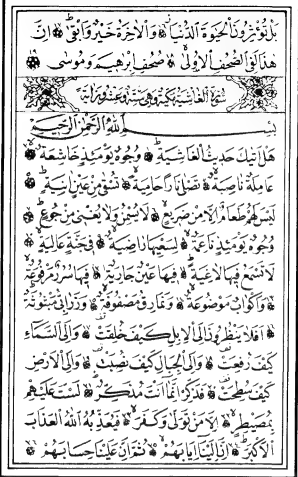 بَلْ تُؤْثِرُونَ الْحَيٰوةَ الدُّنْيَا وَالْاٰخِرَةُ خَيْرٌ وَاَبْقٰى اِنَّ
هٰذَا لَفِى الصُّحُفِ الْاُولٰى صُحُفِ اِبْرٰهِيمَ وَمُوسٰى
سُورَةُ الْغَاشِيَةِ مَكِّيَّةٌ وَهِىَ سِتٌّ وَعِشْرُونَ اٰيَةً
بِسْمِ اللّٰهِ الرَّحْمٰنِ الرَّحِيمِ
هَلْ اَتٰيكَ حَدِيثُ الْغَاشِيَةِ وُجُوهٌ يَوْمَئِذٍ خَاشِعَةٌ
عَامِلَةٌ نَاصِبَةٌ تَصْلٰى نَارًا حَامِيَةً تُسْقٰى مِنْ عَيْنٍ اٰنِيَةٍ
لَيْسَ لَهُمْ طَعَامٌ اِلَّا مِنْ ضَرِيعٍ لَا يُسْمِنُ وَلَا يُغْنِى مِنْ جُوعٍ
وُجُوهٌ يَوْمَئِذٍ نَاعِمَةٌ لِسَعْيِهَا رَاضِيَةٌ فِى جَنَّةٍ عَالِيَةٍ
لَا تَسْمَعُ فِيهَا لَاغِيَةً فِيهَا عَيْنٌ جَارِيَةٌ فِيهَا سُرُرٌ مَرْفُوعَةٌ
وَاَكْوَابٌ مَوْضُوعَةٌ وَنَمَارِقُ مَصْفُوفَةٌ وَزَرَابِىُّ مَبْثُوثَةٌ
اَفَلَا يَنْظُرُونَ اِلَى الْاِبِلِ كَيْفَ خُلِقَتْ وَاِلَى السَّمَاءِ
كَيْفَ رُفِعَتْ وَاِلَى الْجِبَالِ كَيْفَ نُصِبَتْ وَاِلَى الْاَرْضِ
كَيْفَ سُطِحَتْ فَذَكِّرْ اِنَّمَا اَنْتَ مُذَكِّرٌ لَسْتَ عَلَيْهِمْ
بِمُصَيْطِرٍ اِلَّا مَنْ تَوَلّٰى وَكَفَرَ فَيُعَذِّبُهُ اللّٰهُ الْعَذَابَ
الْاَكْبَرَ اِنَّ اِلَيْنَا اِيَابَهُمْ ثُمَّ اِنَّ عَلَيْنَا حِسَابَهُمْ